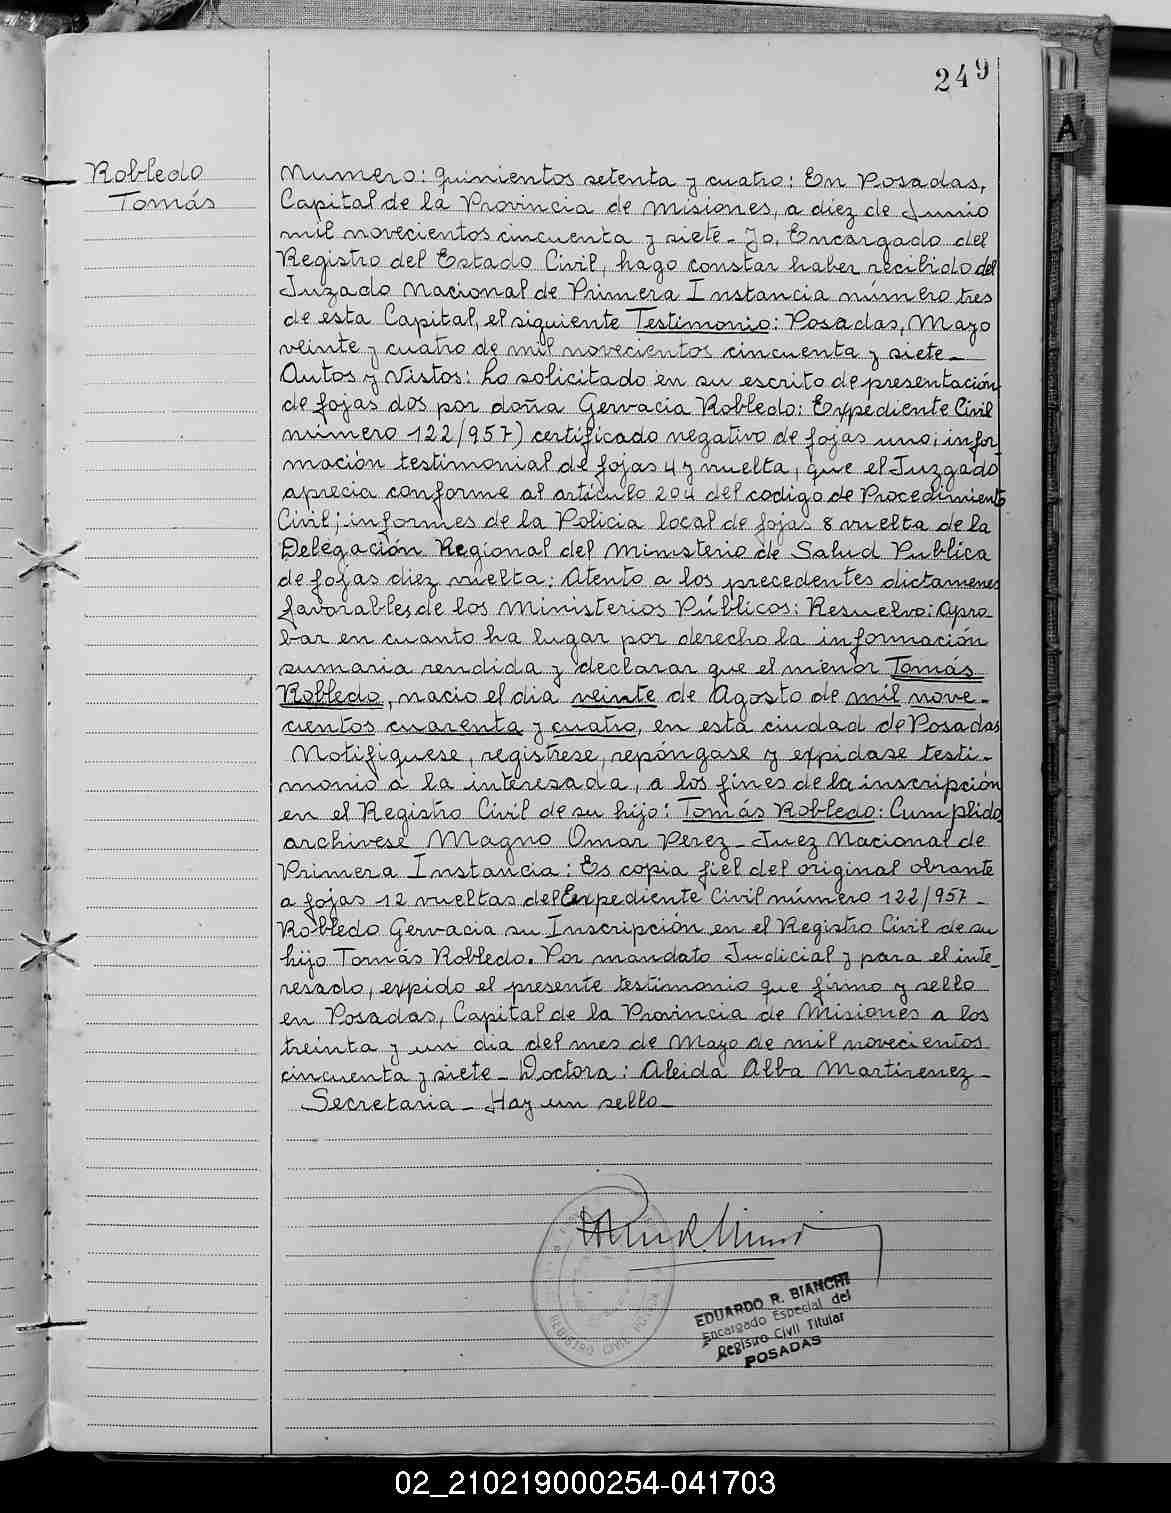 249
Robledo
Tomás
Numero: quinientos setenta y cuatro: En Posadas,
Capital de la Provincia de Misiones, a diez de Junio
mil novecientos cincuenta y siete - Yo, Encargado del
Registro del Estado Civil, hago constar haber recibido del
Juzado Nacional de Primera Instancia número tres
de esta Capital, el siguiente Testimonio: Posadas, Mayo
veinte y cuatro de mil novecientos cincuenta y siete -
Autos y Vistos: Lo solicitado en su escrito de presentación
de fojas dos por doña Gervacia Robledo: Expediente Civil
número 122/957) certificado negativo de fojas uno; infor
mación testimonial de fojas 4 y vuelta, que el Juzgado
aprecia conforme al artículo 204 del codigo de Procedimiento
Civil; informes de la Policia local de fojas 8 vuelta de la
Delegación Regional del Ministerio de Salud Publica
de fojas diez vuelta: Atento a los precedentes dictamenes
favorables, de los Ministerios Públicos: Resuelvo: Apro
bar en cuanto ha lugar por derecho la información
sumaria rendida y declarar que el menor Tomás
Robledo, nacio el dia veinte de Agosto de mil nove-
cientos cuarenta y cuatro, en esta ciudad de Posadas
Notifiquese, registrese, repóngase y expidase testi-
monio a la interesada, a los fines de la inscripción
en el Registro Civil de su hijo: Tomás Robledo: Cumplido
archivese Magno Omar Perez - Juez Nacional de
Primera Instancia: Es copia fiel del original obrante
a fojas 12 vueltas del Expediente Civil número 122/957 -
Robledo Gervacia su Inscripción en el Registro Civil de su
hijo Tomás Robledo. Por mandato Judicial y para el inte-
resado, expido el presente testimonio que firmo y sello
en Posadas, Capital de la Provincia de Misiones a los
treinta y un dia del mes de Mayo de mil novecientos
cincuenta y siete - Doctora: Aleida Alba Martirenez -
Secretaria - Hay un sello -
REGISTRO CIVIL
EDUARDO R. BIANCHI
Encargado Especial del
Registro Civil Titular
POSADAS
A
02_210219000254-041703